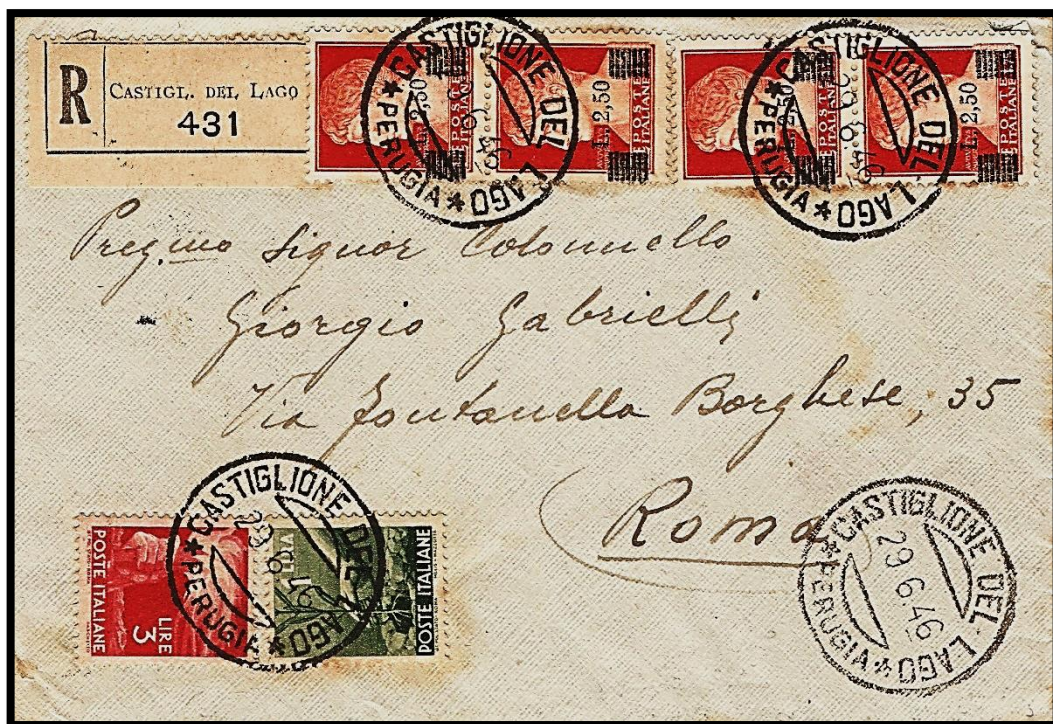 R
CASTIGL. DEL LAGO
431
L. 2,50
POSTE ITALIANE
L. 2,50
POSTE ITALIANE
L. 2,50
POSTE ITALIANE
L. 2,50
POSTE ITALIANE
CASTIGLIONE DEL LAGO
* PERUGIA *
29.6.46
CASTIGLIONE DEL LAGO
* PERUGIA *
29.6.46
Preg.mo Signor Colonnello
Giorgio Gabrielli
Via Fontanella Borghese, 35
Roma
POSTE ITALIANE
LIRE 3
LIRA 1
POSTE ITALIANE
CASTIGLIONE DEL LAGO
* PERUGIA *
29.6.46
CASTIGLIONE DEL LAGO
* PERUGIA *
29.6.46